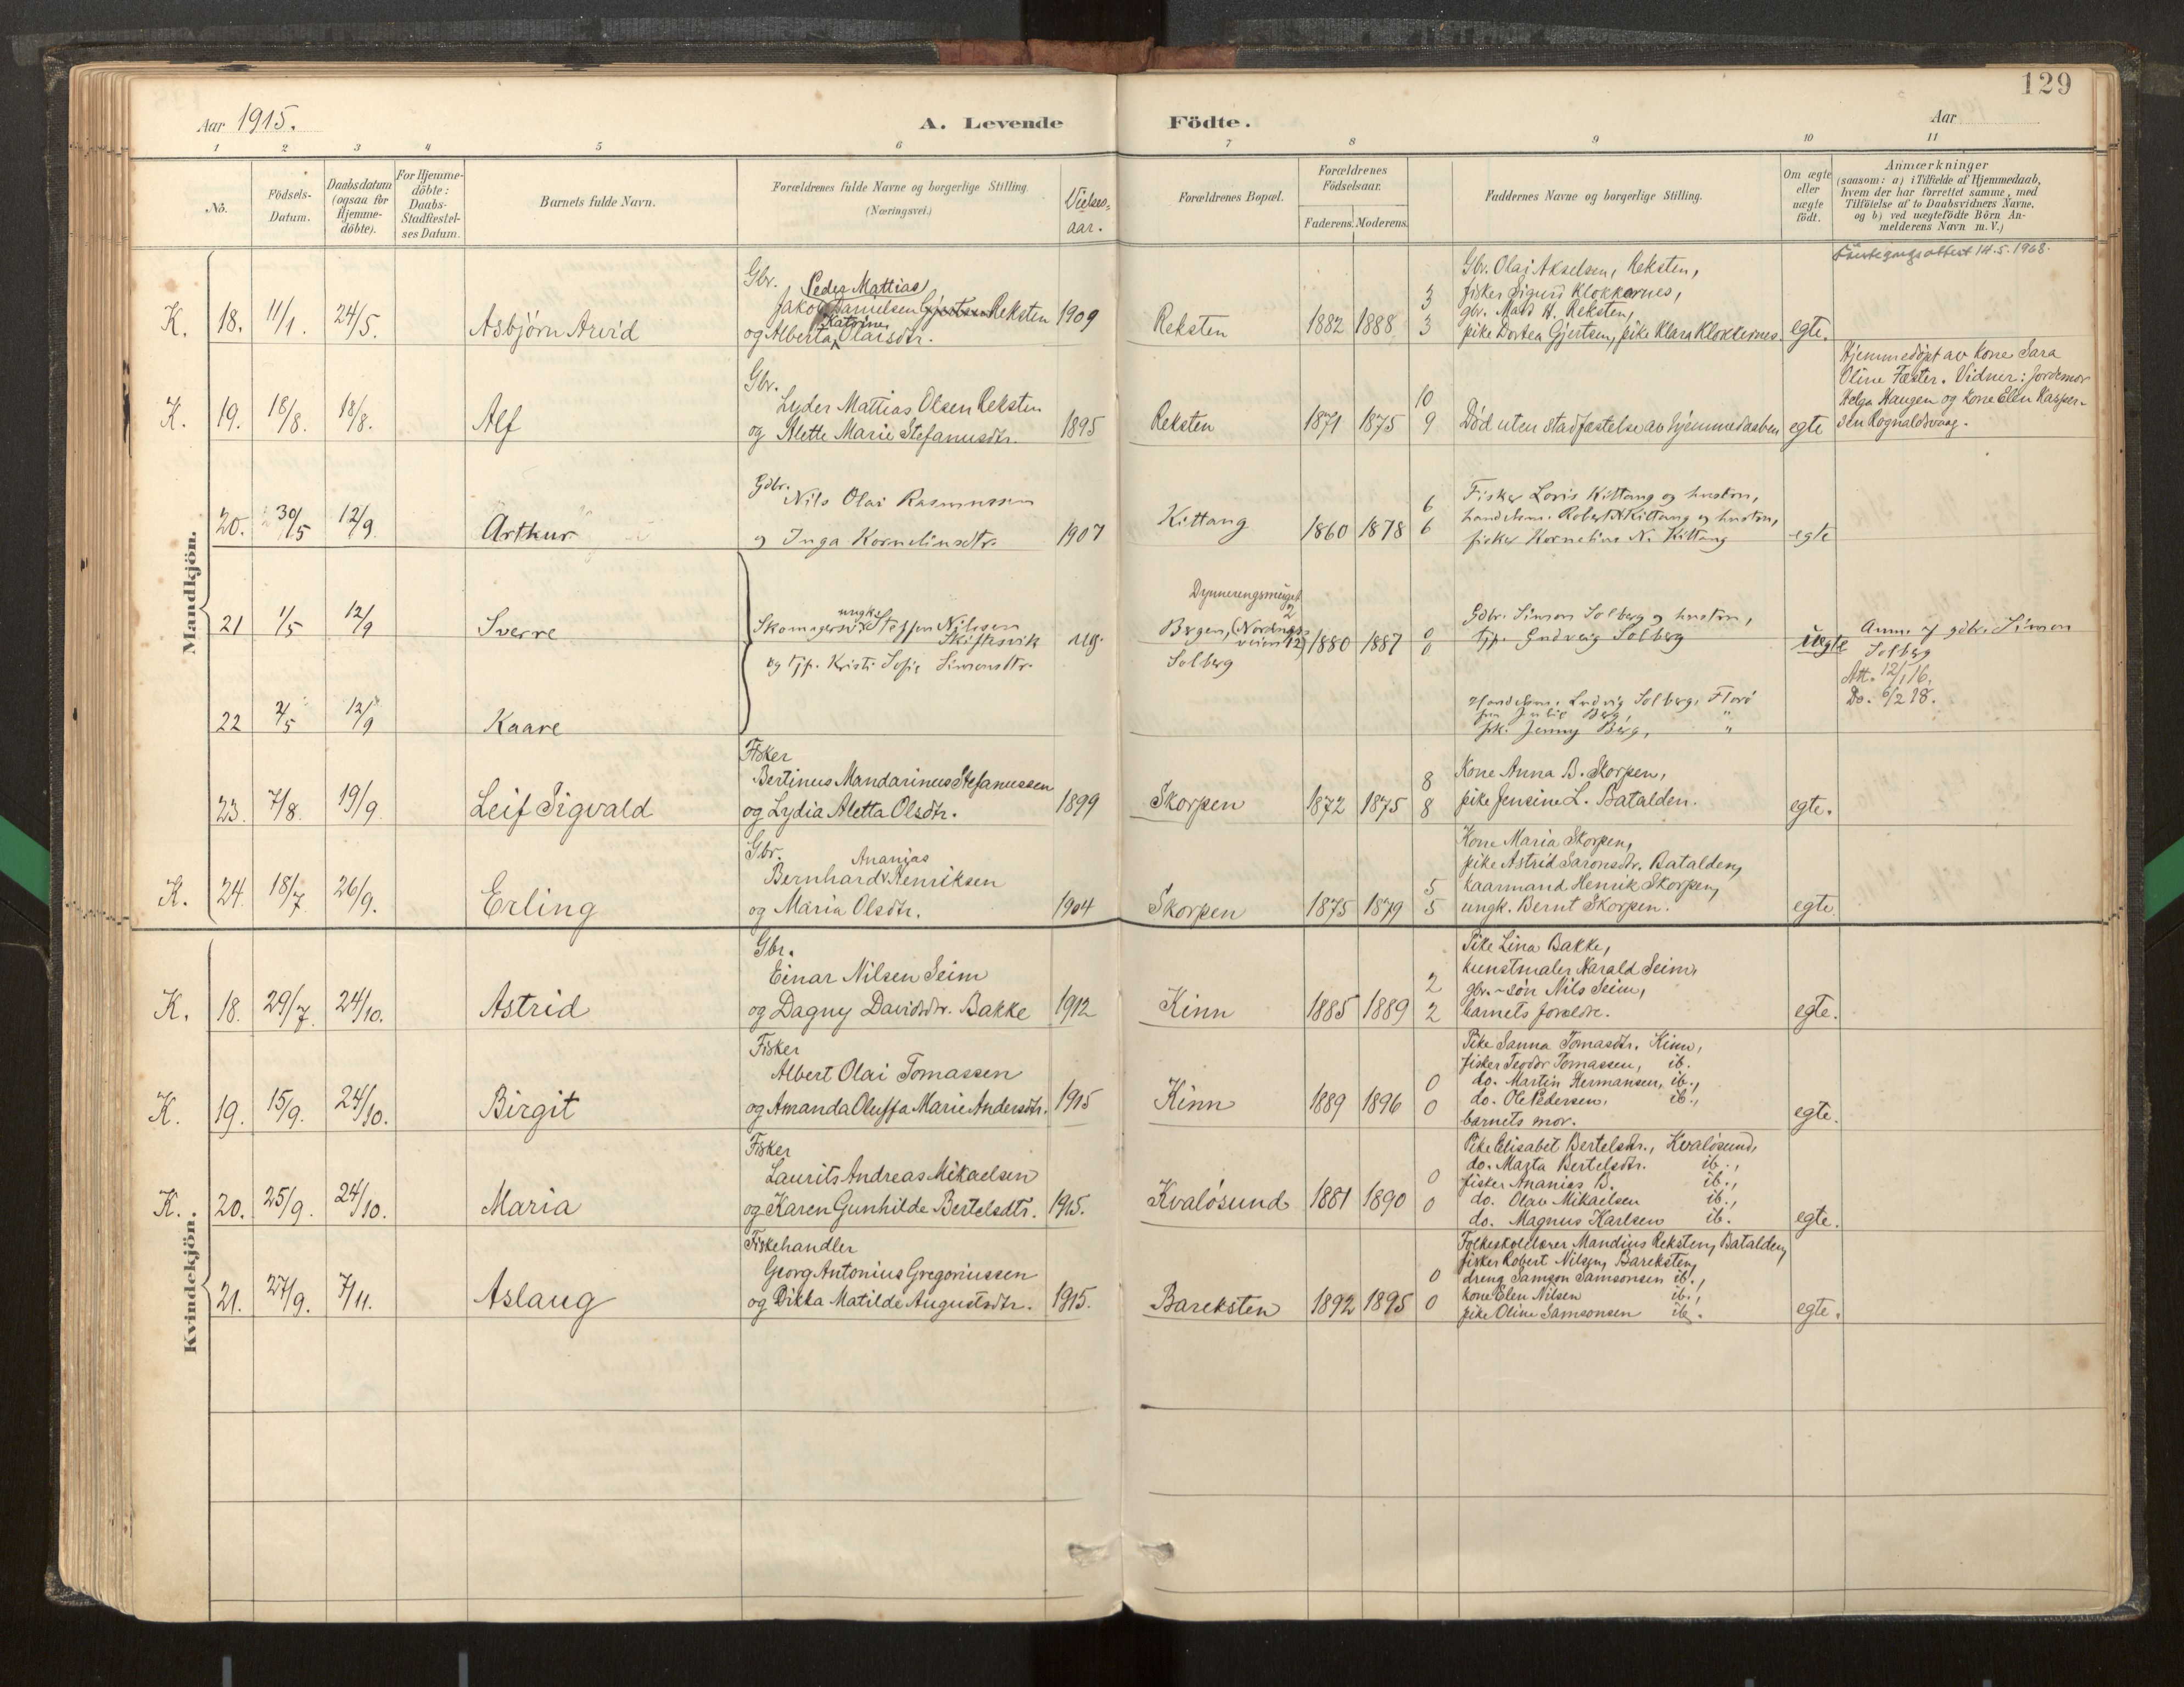 129
Aar 1915.
A. Levende Födte.
Aar
1 2 3 4 5 6 7 8 9 10 11
Nö.
Födsels-
Datum.
Daabsdatum
(ogsaa for
Hjemme-
döbte).
For Hjemme-
döbte:
Daabs-
Stadfæstel-
ses Datum.
Barnets fulde Navn.
Forældrenes fulde Navne og borgerlige Stilling.
(Næringsvei.)
Vielses-
aar.
Forældrenes Bopæl.
Forældrenes
Födselsaar.
Faderens. Moderens.
Faddernes Navne og borgerlige Stilling.
Om ægte
eller
uægte
födt.
Anmærkninger
(saasom: a) i Tilfælde af Hjemmedaab,
hvem der har forrettet samme, med
Tilföielse af to Daabsvidners Navne.
og b) ved uægtefödte Börn An-
melderens Navn m. V.)
Mandkjön.
K. 18. 11/1. 24/5. Asbjörn Arvid
Gbr. Peder Mattias
Jakob Danielsen Gjertsen Reksten
Katrine
og Alberta Olaisdtr.
1909
Reksten
1882 1888
3
3
Gbr. Olai Akselsen, Reksten,
fisker Sigurd Klokkernes,
gbr. Mads H. Reksten,
pike Dortea Gjertsen, pike Klara Klokkernes.
egte.
14.5.1968.
K. 19. 18/8. 18/8. Alf
Gbr.
Lyder Mattias Olsen Reksten
og Alette Marie Stefanusdtr.
1895
Reksten
1871 1875
10
9
Död uten stadfæstelse av hjemmedaaben
egte
Hjemmedöpt av kone Sara
Oline Fæster. Vidner: Jordemor
Helga Haugen og kone Elen Kasper-
sen Rognaldsvaag.
20. 30/5 12/9 Arthur
Gdbr.
Nils Olai Rasmussen
og Inga Kornelinsdtr.
1907
Kittang
1860 1878
6
6
Fisker Lovis Kittang og hustru,
handelsm. Robert N Kittang og hustru,
fisker Kornelius N. Kittang
egte
21 1/5 12/9 Sverre
ungk.
Skomagersv. Steffen Nilssen
Skiftesvik
og tjp. Kristi Sofie Simonsdtr.
ug.
Bergen, (Nordnæs-
veien 12)
Solberg
1880 1887
0
0
Gdbr. Simon Solberg og hustru,
tjp. Gudveig Solberg
uegte
Anm. af gdbr. Simon
Solberg
Att. 12/1 16.
Do. 6/2 18.
22 2/5 12/9 Kaare
Handelsm. Ludvig Solberg, Florö
fru Julie Berg, "
pk. Jenny Berg, "
23. 7/8. 19/9. Leif Sigvald
Fisker
Bertinus Mandarinus Stefanussen
og Lydia Aletta Olsdtr.
1899
Skorpen
1872 1875
8
8
Kone Anna B. Skorpen,
pike Jensine L. Batalden.
egte.
K. 24. 18/7. 26/9. Erling
Gbr. Ananias
Bernhard Henriksen
og Maria Olsdtr.
1904
Skorpen
1875 1879
5
5
Kone Maria Skorpen,
pike Astrid Saronsdtr. Batalden,
kaarmand Henrik Skorpen,
ungk. Bernt Skorpen.
egte
Kvindekjön.
K. 18. 29/7. 24/10. Astrid
Gbr.
Einar Nilsen Seim
og Dagny Davidsdtr. Bakke
1912
Kinn
1885 1889
2
2
Pike Lina Bakke,
kunstmaler Harald Seim,
gbr.-sön Nils Seim,
barnets forældre.
egte.
K. 19. 15/9. 24/10. Birgit
Fisker
Albert Olai Tomassen
og Amanda Oluffa Marie Andersdtr.
1915
Kinn
1889 1896
0
0
Pike Sanna Tomasdtr. Kinn,
fisker Teodor Tomassen, ib.
do. Martin Hermansen, ib.,
do. Ole Pedersen, ib.,
barnets mor.
egte.
K. 20. 25/9. 24/10. Maria
Fisker
Laurits Andreas Mikaelsen
og Karen Gunhilde Bertelsdtr.
1915.
Kvalösund
1881 1890
0
0
Pike Elisabet Bertelsdtr., Kvalösund,
do. Marta Bertelsdtr. ib.,
fisker Ananias B. ib.,
do. Olav Mikaelsen ib.,
do. Magnus Karlsen ib.
egte.
21. 27/9. 7/11. Aslaug
Fiskehandler
Georg Antonius Gregoriussen
og Dikka Matilde Augustsdtr.
1915.
Bareksten
1892 1895
0
0
Folkeskolelærer Mandius Reksten, Batalden,
fisker Robert Nilsen, Bareksten,
dreng Samson Samsonsen ib.,
kone Elen Nilsen ib.,
pike Oline Samsonsen ib.
egte.